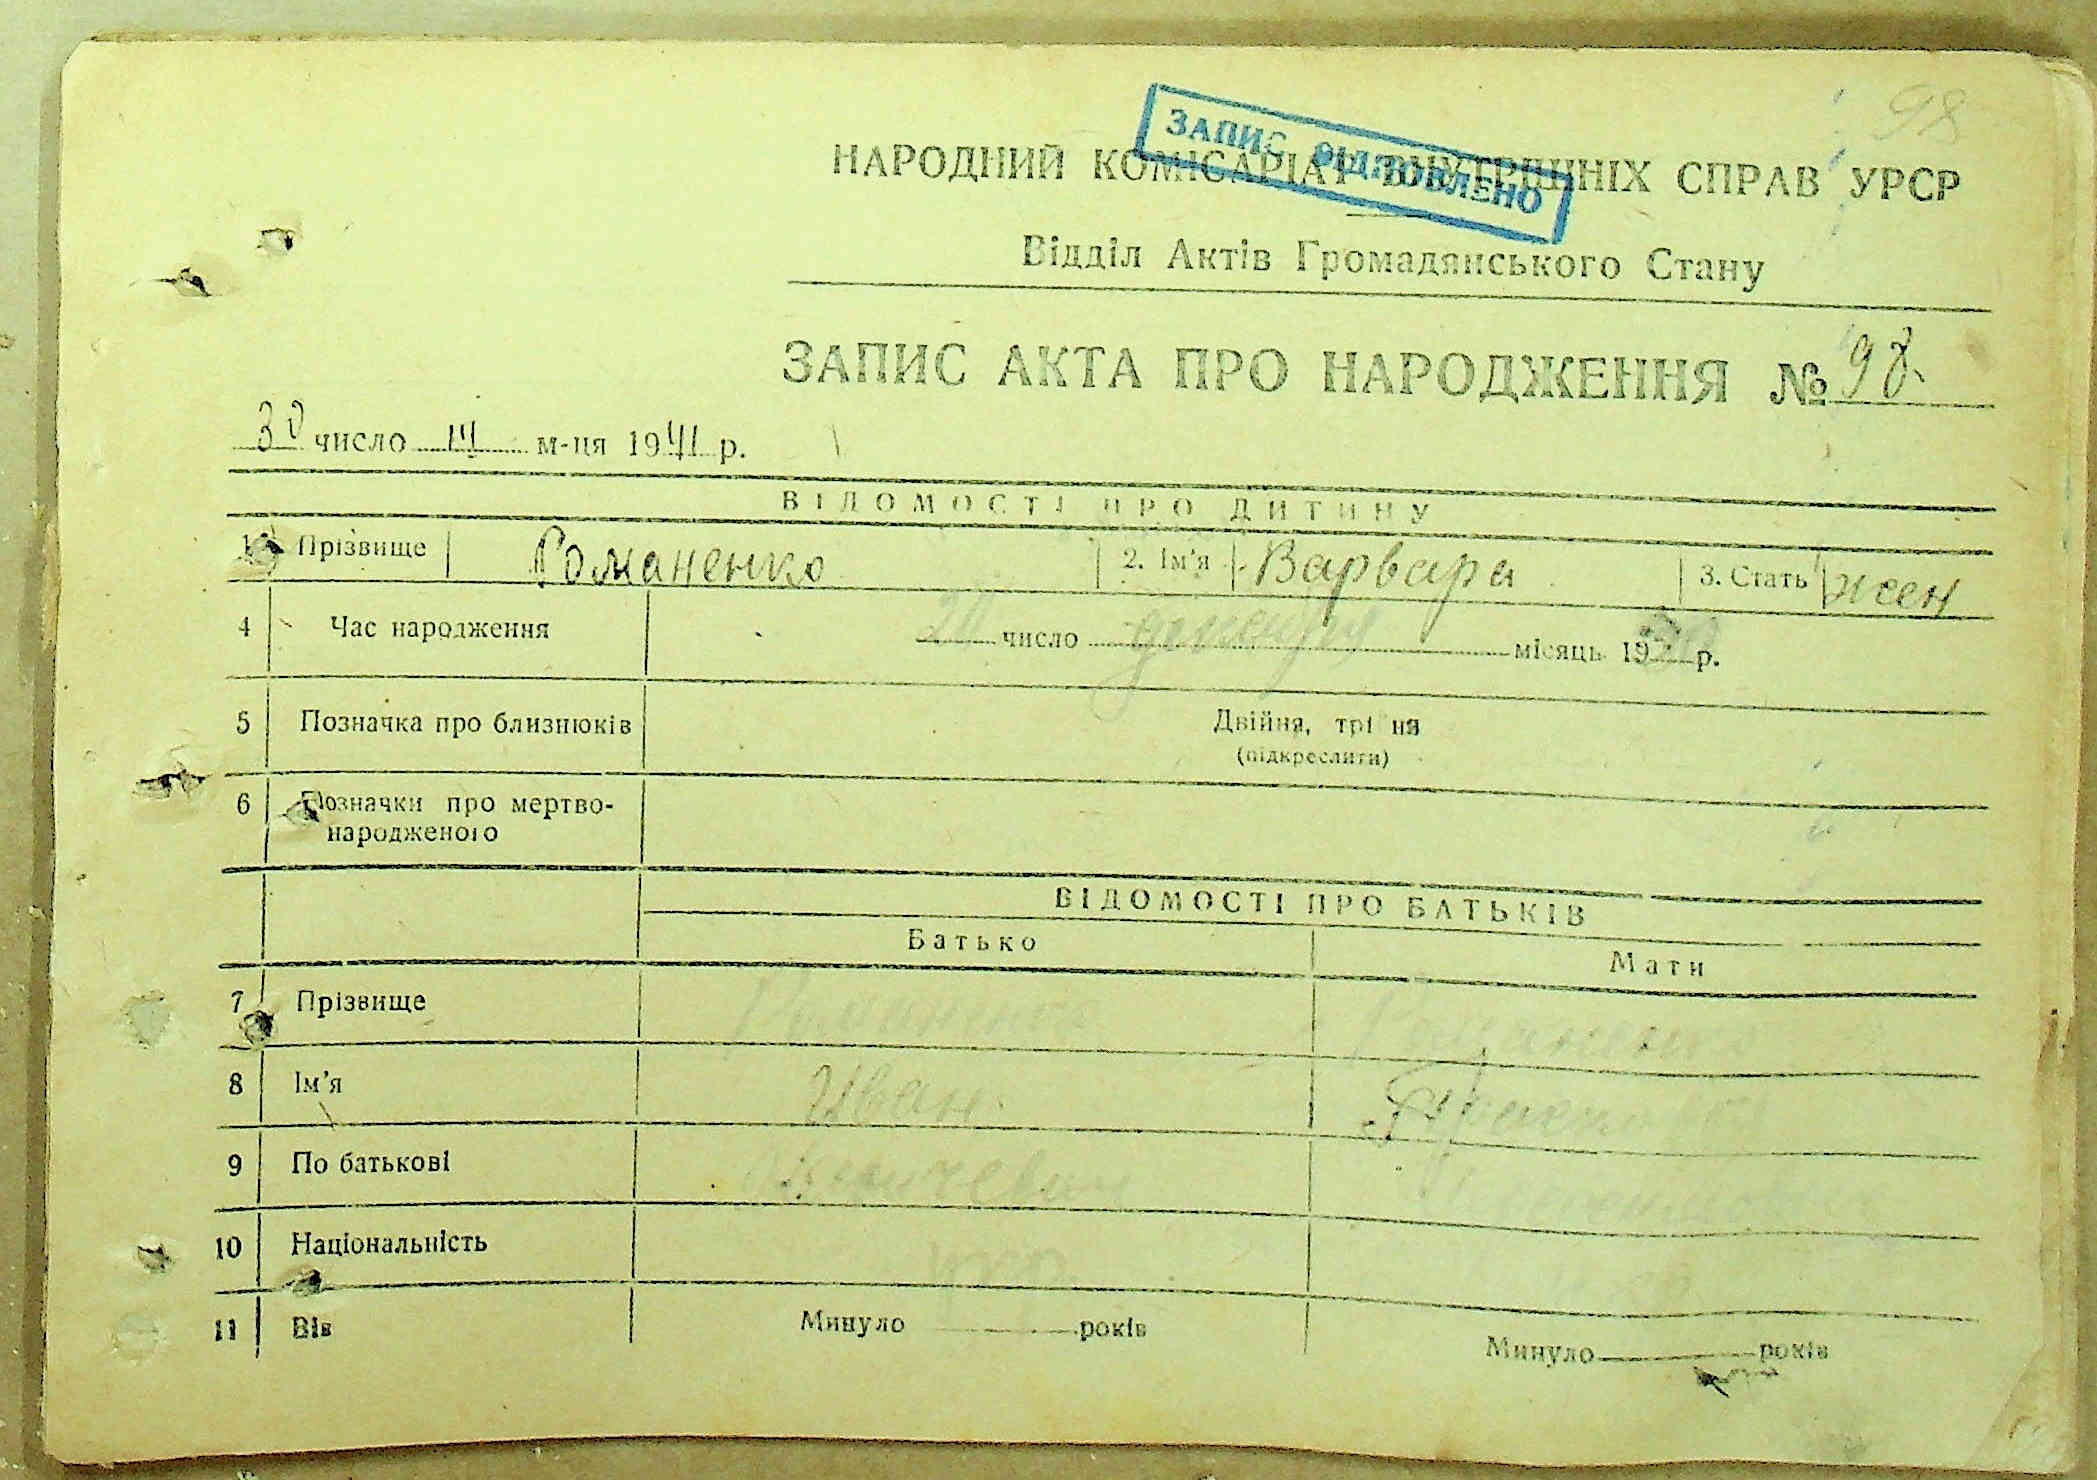 98
ЗАПИС ВІДНОВЛЕНО
НАРОДНИЙ КОМІСАРІАТ ВНУТРІШНІХ СПРАВ УРСР
Відділ Актів Громадянського Стану
ЗАПИС АКТА ПРО НАРОДЖЕННЯ № 98
30 число III м-ця 1941 р.
ВІДОМОСТІ ПРО ДИТИНУ
1 Прізвище Романенко 2. Ім'я Варвара 3. Стать жен
4 Час народження число місяць 19 р.
5 Позначка про близнюків Двійня, трійня
(підкреслити)
6 Позначки про мертво-
народженого
ВІДОМОСТІ ПРО БАТЬКІВ
Батько Мати
7 Прізвище Романенко Романенко
8 Ім'я Иван
9 По батькові
10 Національність укр
11 Вік Минуло років Минуло років